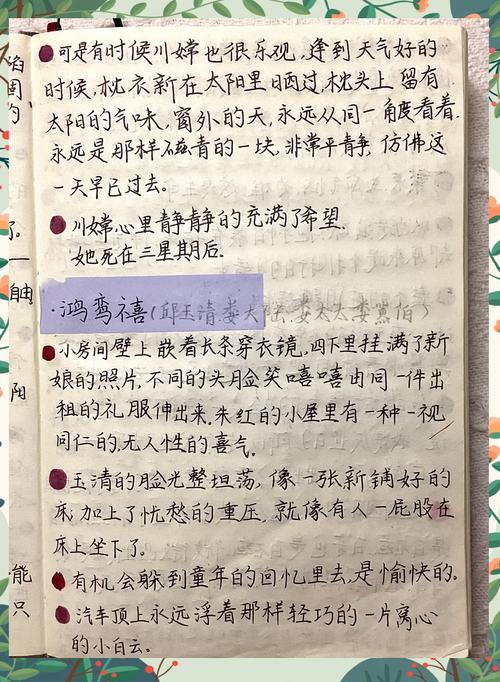 可是有时候川嫦也很乐观，逢到天气好的
时候，枕衣新在太阳里晒过，枕头上留有
太阳的气味，窗外的天，永远从同一角度看着，
永远是那样磁青的一块，非常平静，仿佛这
一天早已过去。
川嫦心里静静的充满了希望。
她死在三星期后。
·鸿鸾禧（邱玉清 娄大陆 娄太太 娄嚣伯）
小房间壁上嵌着长条穿衣镜，四下里挂满了新
娘的照片，不同的头脸笑嘻嘻由同一件出
租的礼服伸出来。朱红的小屋里有一种一视
同仁的，无人性的喜气。
玉清的脸光整坦荡，像一张新铺好的
床；加上了忧愁的重压，就像有人一屁股在
床上坐下了。
有机会躲到童年的回忆里去，是愉快的。
汽车顶上永远浮着那样轻巧的一片窝心
的小白云。
了。
一
自由
阳
能
只